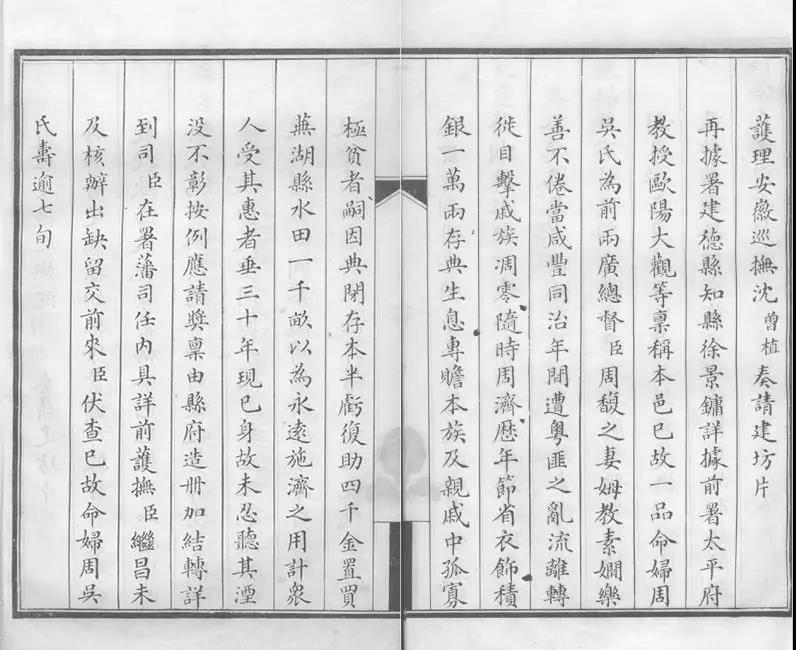 護理安徽巡撫沈曾植奏請建坊片
再據署建德縣知縣徐景鏞詳據前署太平府
教授歐陽大觀等稟稱本邑已故一品命婦周
吳氏為前兩廣總督臣周馥之妻姆教素嫺樂
善不倦當咸豐同治年間遭粵匪之亂流離轉
徙目擊戚族凋零隨時周濟歷年節省衣飾積
銀一萬兩存典生息專贍本族及親戚中孤寡
極貧者嗣因典閉存本半虧復助四千金置買
蕪湖縣水田一千畝以為永遠施濟之用計眾
人受其惠者垂三十年現已身故未忍聽其湮
沒不彰按例應請獎稟由縣府造冊加結轉詳
到司臣在署藩司任內具詳前護撫臣繼昌未
及核辦出缺留交前來臣伏查已故命婦周吳
氏壽逾七旬